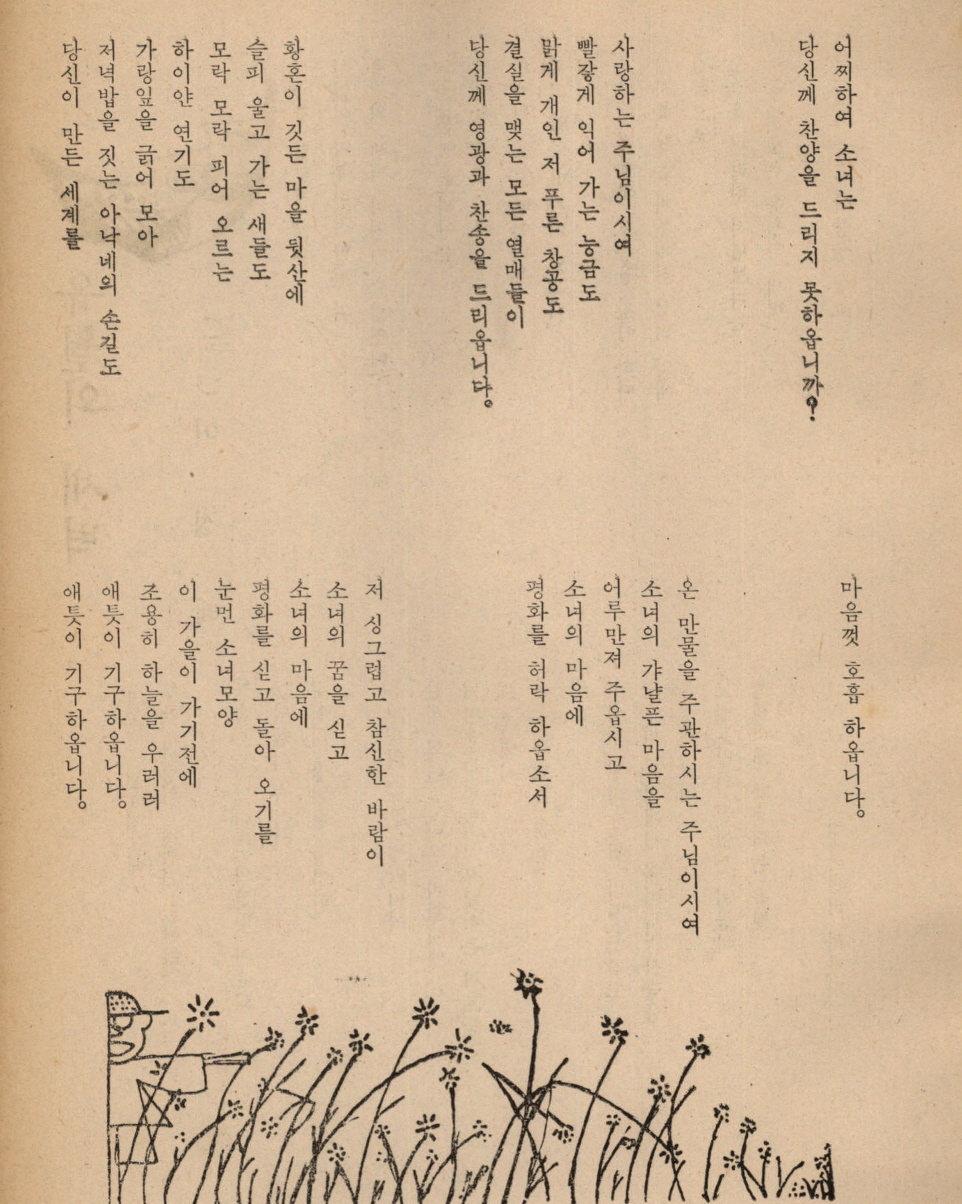 어찌하여 소녀는
당신께 찬양을 드리지 못하옵니까?
사랑하는 주님이시여
빨갛게 익어 가는 능금도
맑게 개인 저 푸른 창공도
결실을 맺는 모든 열매들이
당신께 영광과 찬송을 드리옵니다.
황혼이 깃든 마을 뒷산에
슬피 울고 가는 새들도
모락 모락 피어 오르는
하이얀 연기도
가랑잎을 긁어 모아
저녁밥을 짓는 아낙네의 손길도
당신이 만든 세계를
마음껏 호흡 하옵니다.
온 만물을 주관하시는 주님이시여
소녀의 갸냘픈 마음을
어루만져 주옵시고
소녀의 마음에
평화를 허락 하옵소서
저 싱그럽고 참신한 바람이
소녀의 꿈을 싣고
소녀의 마음에
평화를 싣고 돌아 오기를
눈먼 소녀모양
이 가을이 가기전에
조용히 하늘을 우러러
애틋이 기구하옵니다.
애틋이 기구하옵니다.